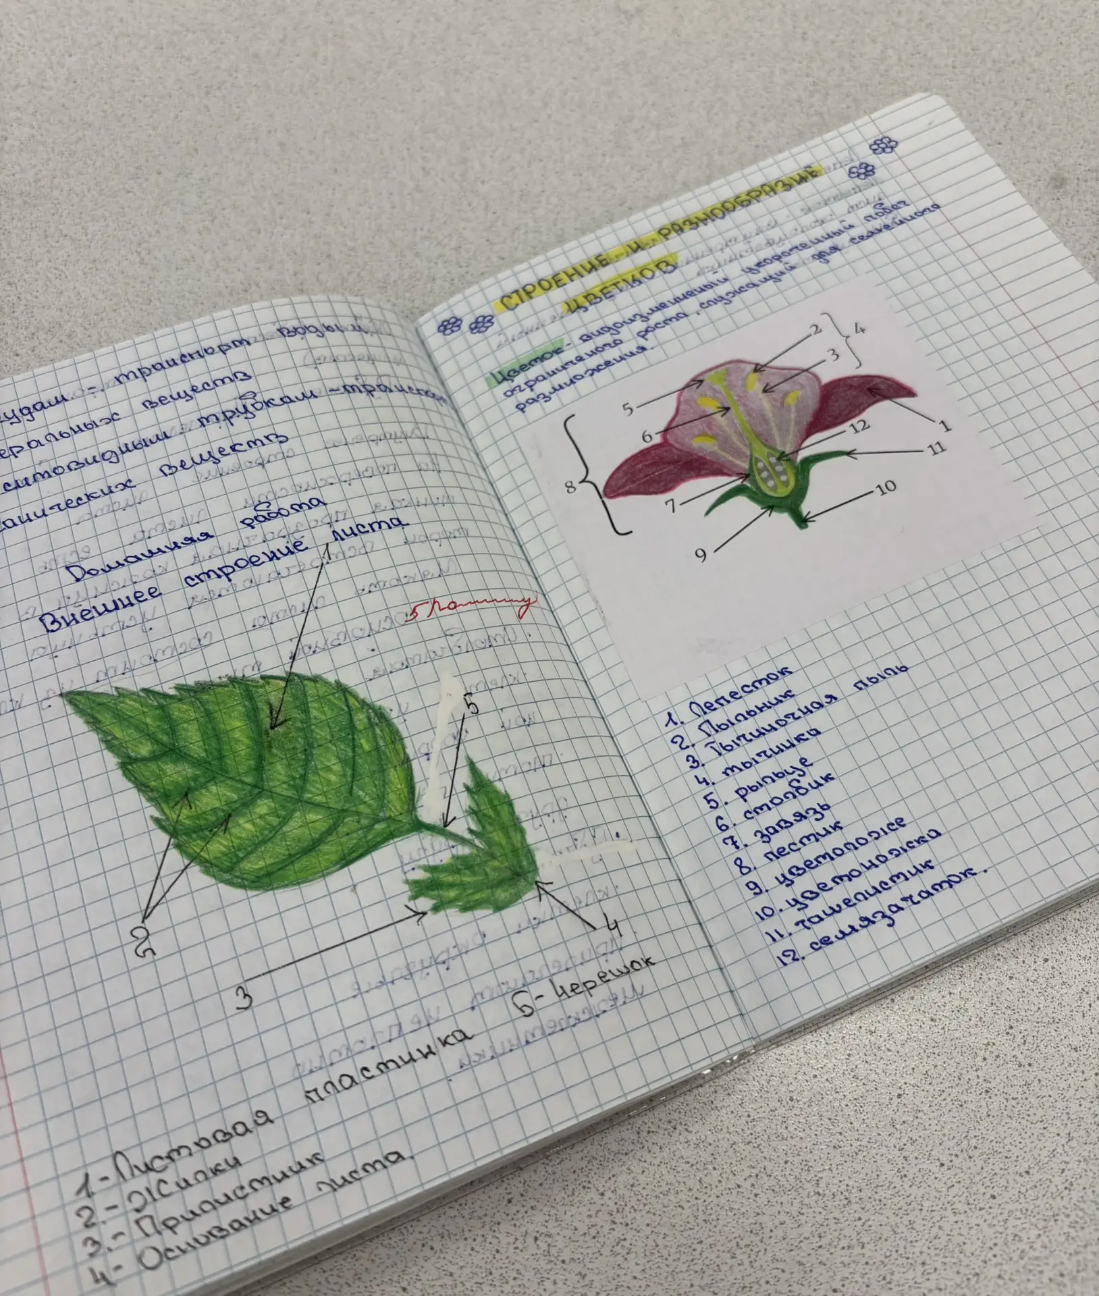 транспорт воды и
веществ
ситовидным трубкам - транспо
веществ
Домашняя работа
Внешнее строение листа
1
5
2
3
4
1 - Листовая пластинка 5 - Черешок
2 - Жилки
3 - Прилистник
4 - Основание листа.
СТРОЕНИЕ И РАЗНООБРАЗИЕ
ЦВЕТКОВ
Цветок - видоизмененный укороченный побег
ограниченого роста, служащий для семенного
размножения.
2
4
3
5
1
6
12
11
8
7
10
9
1. Лепесток
2. Пыльник
3. Тычиночная пыль
4. тычинка
5. рыльце
6. столбик
7. завязь
8. пестик
9. цветоложе
10. цветоножка
11. чашелистик
12. семязачаток.